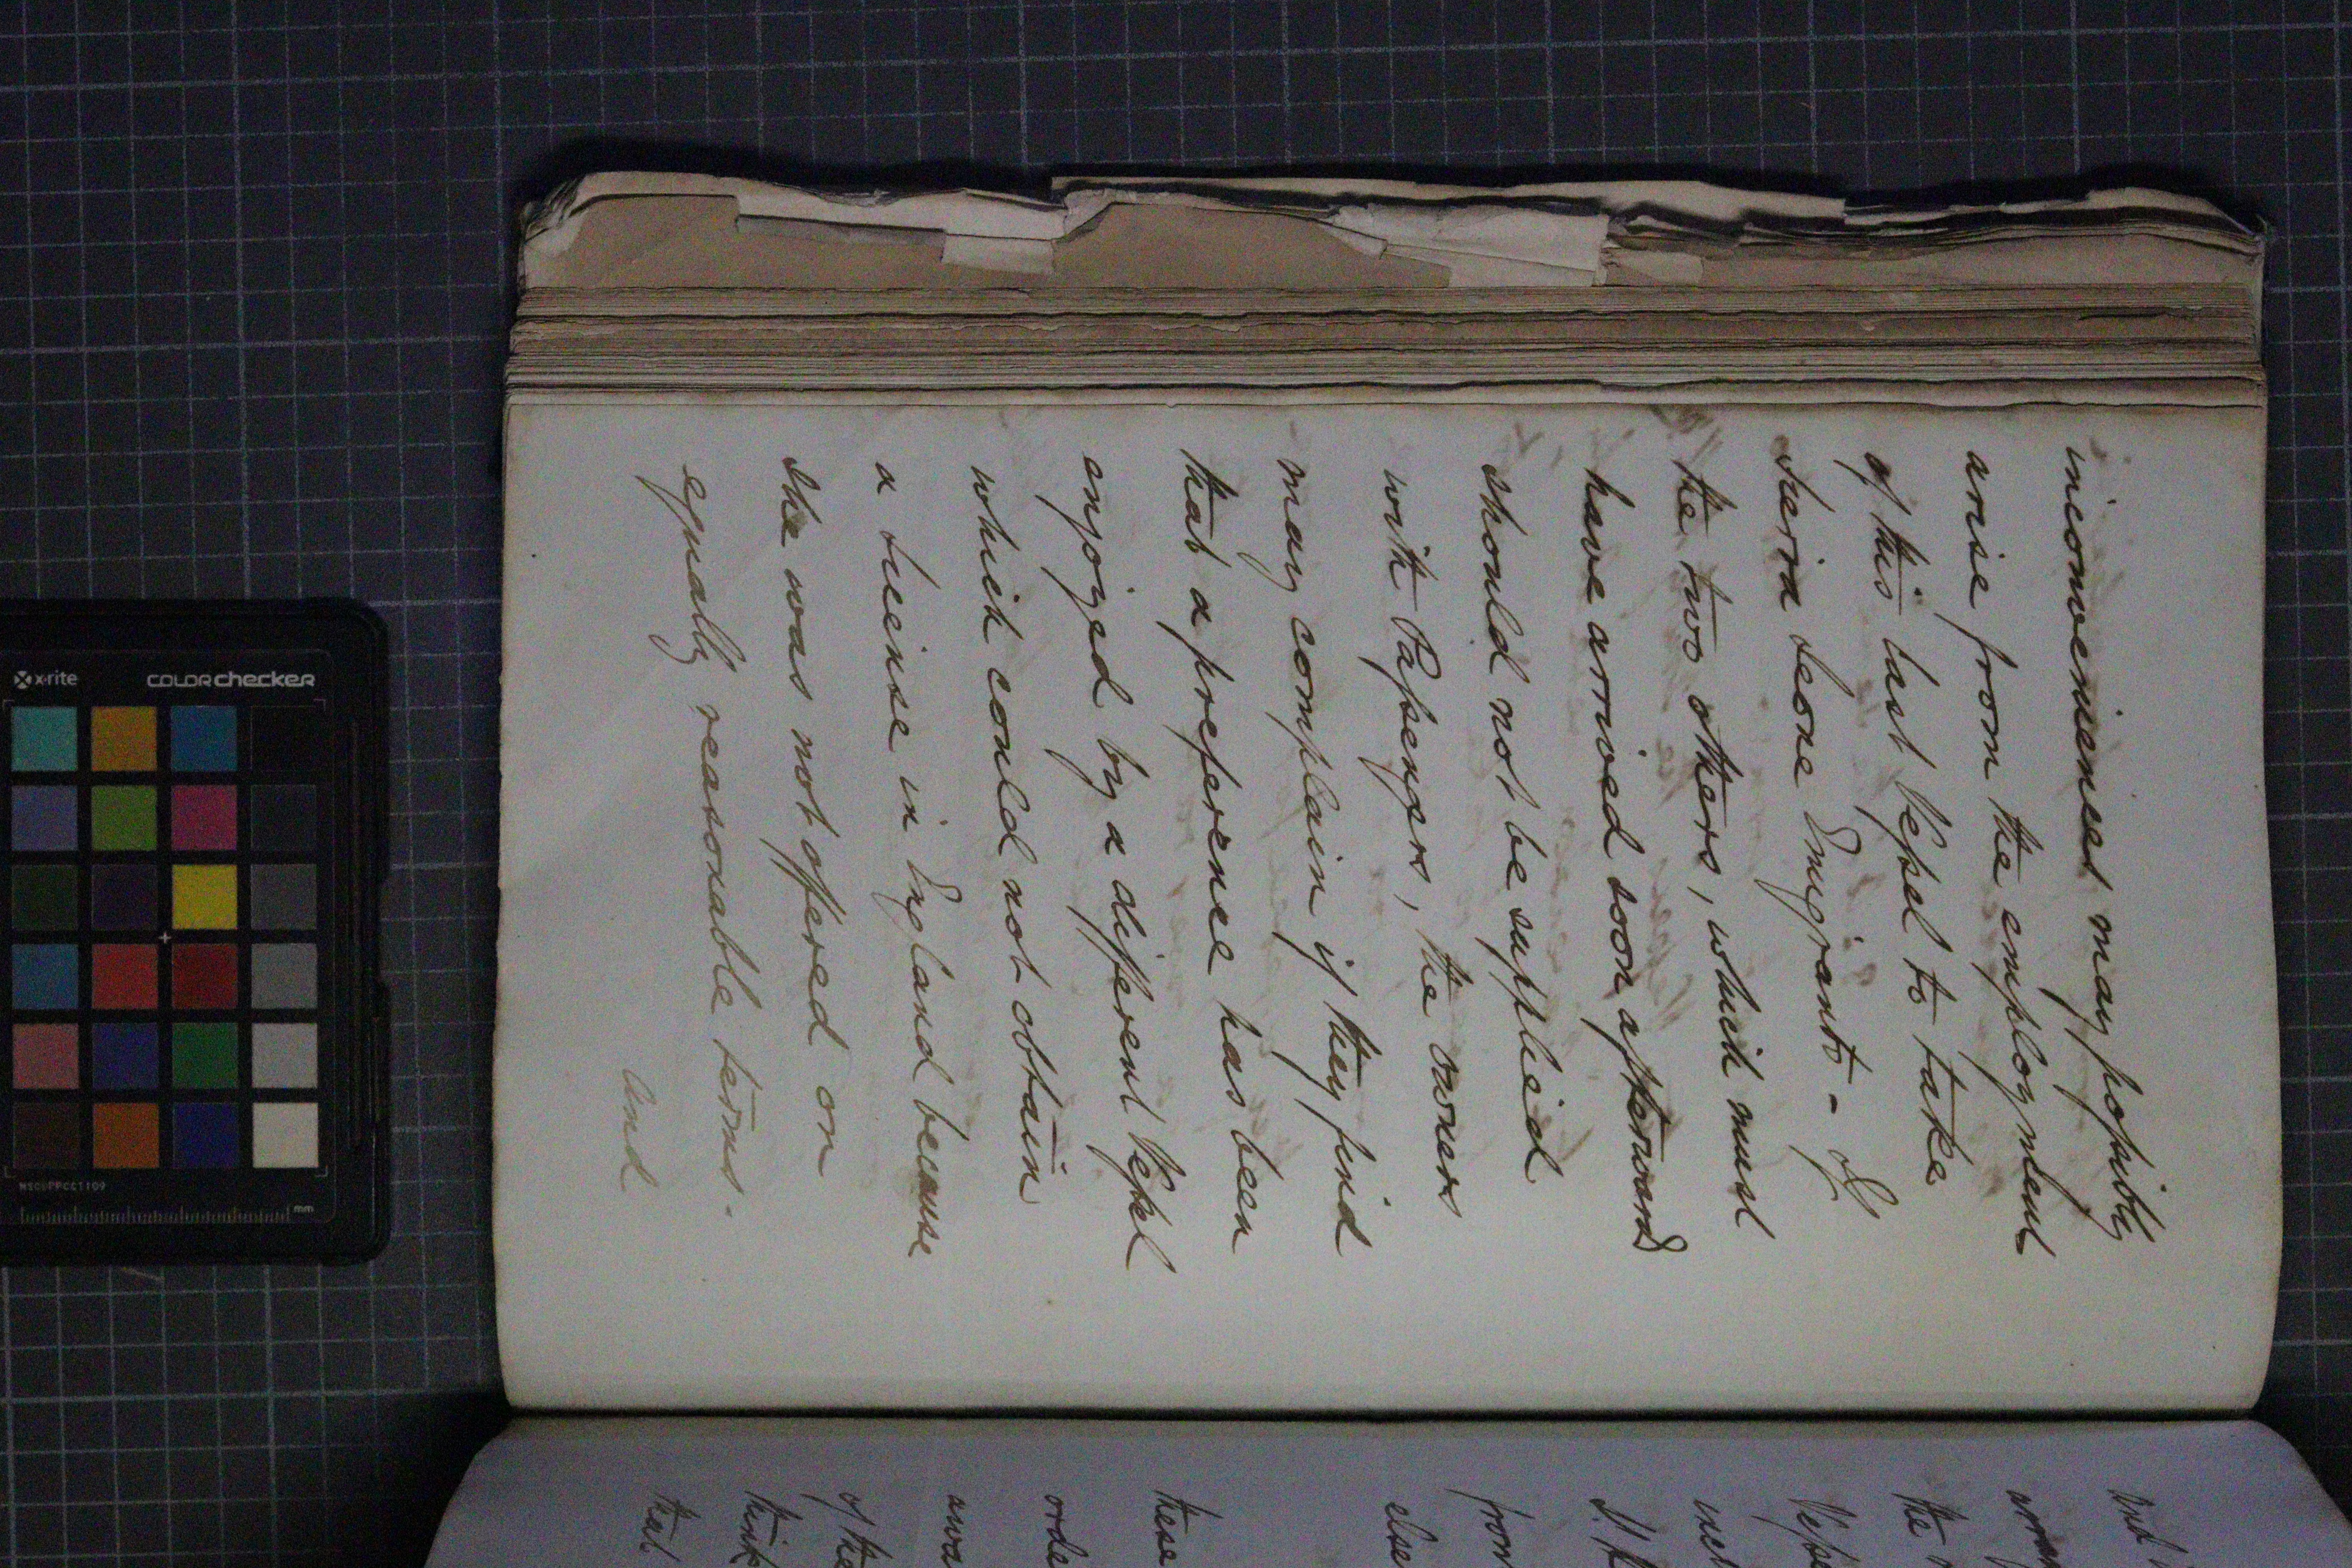 inconveniences may possibly
arise from the employment
of this last Vessel to take
Sierra Leone Emigrants - If
the two others, which must
have arrived soon afterwards
should not be supplied
with Passengers, the owners
may complain if they find
that a preference has been
enjoyed by a different Vessel
which could not obtain
a license in England because
she was not offered on
equally reasonable terms.
And
And
the
from
else
these
of the
think
that
x-rite
COLORchecker
MSCCPPCC1109
mm